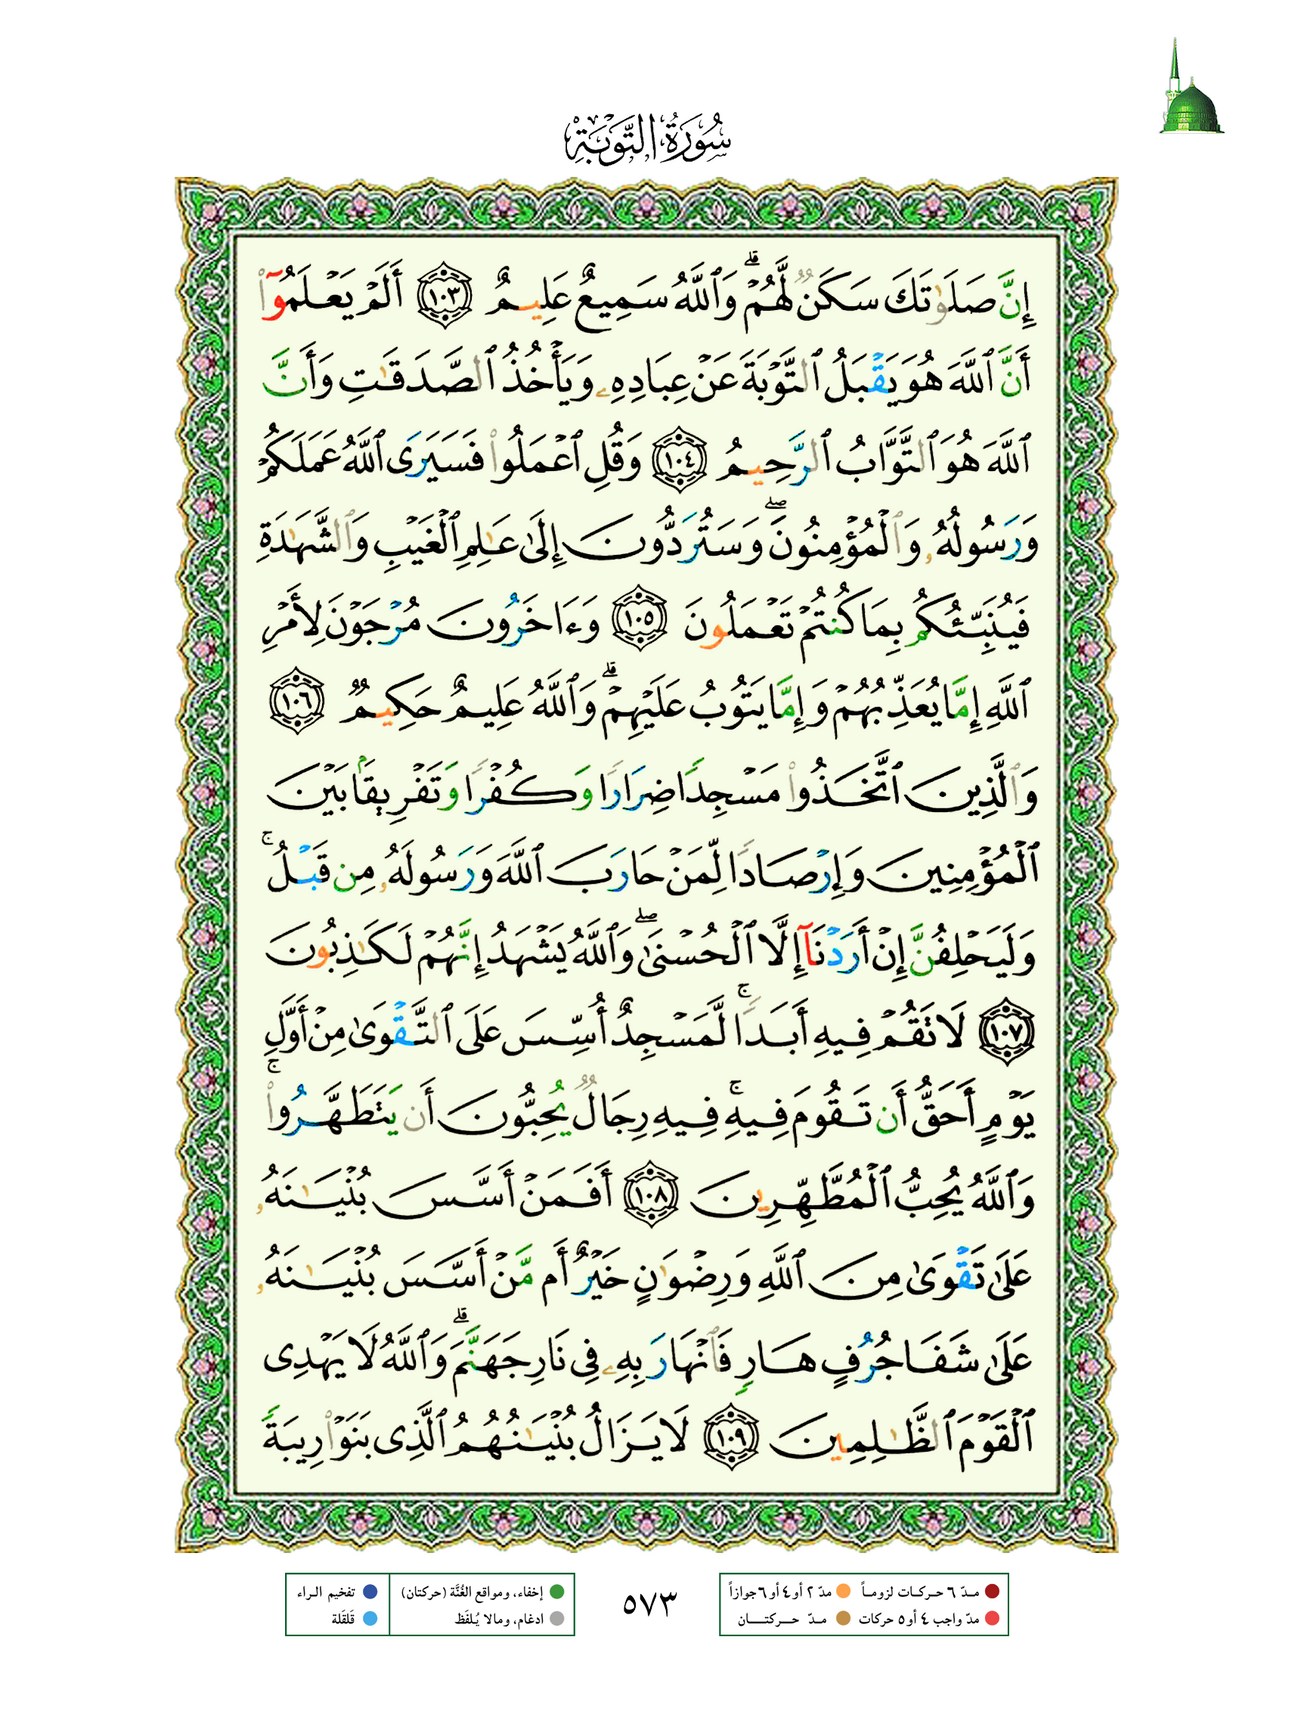 سُورَةُ التَّوْبَةِ
إِنَّ صَلَوٰتَكَ سَكَنٌ لَّهُمْ ۗ وَٱللَّهُ سَمِيعٌ عَلِيمٌ ١٠٣ أَلَمْ يَعْلَمُوٓا۟
أَنَّ ٱللَّهَ هُوَ يَقْبَلُ ٱلتَّوْبَةَ عَنْ عِبَادِهِۦ وَيَأْخُذُ ٱلصَّدَقَٰتِ وَأَنَّ
ٱللَّهَ هُوَ ٱلتَّوَّابُ ٱلرَّحِيمُ ١٠٤ وَقُلِ ٱعْمَلُوا۟ فَسَيَرَى ٱللَّهُ عَمَلَكُمْ
وَرَسُولُهُۥ وَٱلْمُؤْمِنُونَ ۖ وَسَتُرَدُّونَ إِلَىٰ عَٰلِمِ ٱلْغَيْبِ وَٱلشَّهَٰدَةِ
فَيُنَبِّئُكُم بِمَا كُنتُمْ تَعْمَلُونَ ١٠٥ وَءَاخَرُونَ مُرْجَوْنَ لِأَمْرِ
ٱللَّهِ إِمَّا يُعَذِّبُهُمْ وَإِمَّا يَتُوبُ عَلَيْهِمْ ۗ وَٱللَّهُ عَلِيمٌ حَكِيمٌ ١٠٦
وَٱلَّذِينَ ٱتَّخَذُوا۟ مَسْجِدًا ضِرَارًا وَكُفْرًا وَتَفْرِيقًۢا بَيْنَ
ٱلْمُؤْمِنِينَ وَإِرْصَادًا لِّمَنْ حَارَبَ ٱللَّهَ وَرَسُولَهُۥ مِن قَبْلُ ۚ
وَلَيَحْلِفُنَّ إِنْ أَرَدْنَآ إِلَّا ٱلْحُسْنَىٰ ۖ وَٱللَّهُ يَشْهَدُ إِنَّهُمْ لَكَٰذِبُونَ
١٠٧ لَا تَقُمْ فِيهِ أَبَدًا ۚ لَّمَسْجِدٌ أُسِّسَ عَلَى ٱلتَّقْوَىٰ مِنْ أَوَّلِ
يَوْمٍ أَحَقُّ أَن تَقُومَ فِيهِ ۚ فِيهِ رِجَالٌ يُحِبُّونَ أَن يَتَطَهَّرُوا۟ ۚ
وَٱللَّهُ يُحِبُّ ٱلْمُطَّهِّرِينَ ١٠٨ أَفَمَنْ أَسَّسَ بُنْيَٰنَهُۥ
عَلَىٰ تَقْوَىٰ مِنَ ٱللَّهِ وَرِضْوَٰنٍ خَيْرٌ أَم مَّنْ أَسَّسَ بُنْيَٰنَهُۥ
عَلَىٰ شَفَا جُرُفٍ هَارٍ فَٱنْهَارَ بِهِۦ فِى نَارِ جَهَنَّمَ ۗ وَٱللَّهُ لَا يَهْدِى
ٱلْقَوْمَ ٱلظَّٰلِمِينَ ١٠٩ لَا يَزَالُ بُنْيَٰنُهُمُ ٱلَّذِى بَنَوْا۟ رِيبَةً
مدّ ٦ حركات لزوماً مدّ ٢ أو ٤ أو ٦ جوازاً
مدّ واجب ٤ أو ٥ حركات مدّ حركتان
٥٧٣
إخفاء، ومواقع الغُنَّة (حركتان) تفخيم الراء
ادغام، ومالا يُلفَظ قَلقَلة